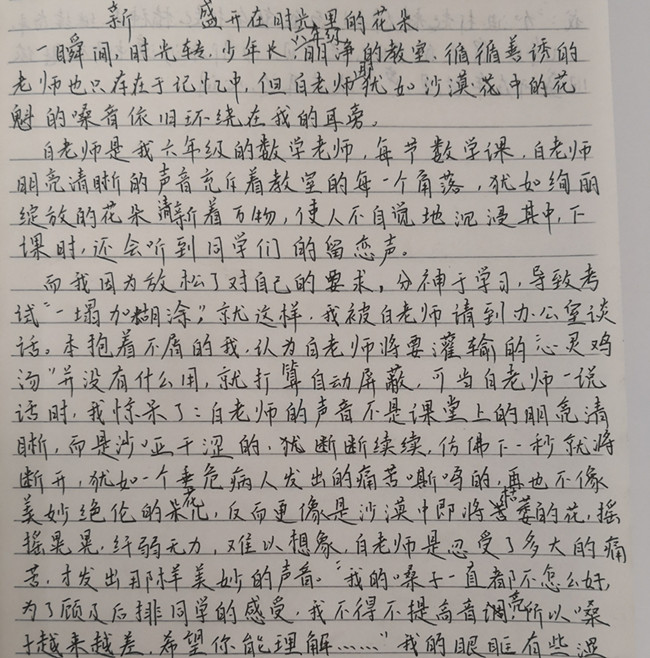 新 盛开在时光里的花朵
一瞬间，时光转，少年长，六年级明净的教室，循循善诱的
老师也只存在于记忆中，但白老师那犹如沙漠花中的花
魁的嗓音依旧环绕在我的耳旁。
白老师是我六年级的数学老师，每节数学课，白老师
明亮清晰的声音充斥着教室的每一个角落，犹如绚丽
绽放的花朵清新着万物，使人不自觉地沉浸其中，下
课时，还会听到同学们的留恋声。
而我因为放松了对自己的要求，分神于学习，导致考
试“一塌加糊涂”，就这样，我被白老师请到办公室谈
话。本抱着不屑的我，认为白老师将要灌输的“心灵鸡
汤”并没有什么用，就打算自动屏蔽，可当白老师一说
话时，我惊呆了：白老师的声音不是课堂上的明亮清
晰，而是沙哑干涩的，犹断断续续，仿佛下一秒就将
断开，犹如一个垂危病人发出的痛苦嘶鸣的，再也不像
美妙绝伦的花朵，反而更像是沙漠中即将枯萎的花，摇
摇晃晃，纤弱无力，难以想象，白老师是忍受了多大的痛
苦，才发出那样美妙的声音。“我的嗓子一直都不怎么好，
为了顾及后排同学的感受，我不得不提高音调亮，所以嗓
子越来越差，希望你能理解……”我的眼眶有些湿